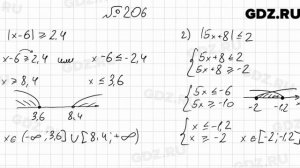 № 206
GDZ.RU
|x-6| ≥ 2,4
x-6 ≥ 2,4 или x-6 ≤ -2,4
x ≥ 8,4 x ≤ 3,6
3,6 8,4
x ∈ (-∞; 3,6] ∪ [8,4; +∞)
2) |5x+8| ≤ 2
{5x+8 ≤ 2
{5x+8 ≥ -2
{5x ≤ -6
{5x ≥ -10
-2 -1,2
{x ≤ -1,2
{x ≥ -2
x ∈ [-2; -1,2]
GDZ.RU